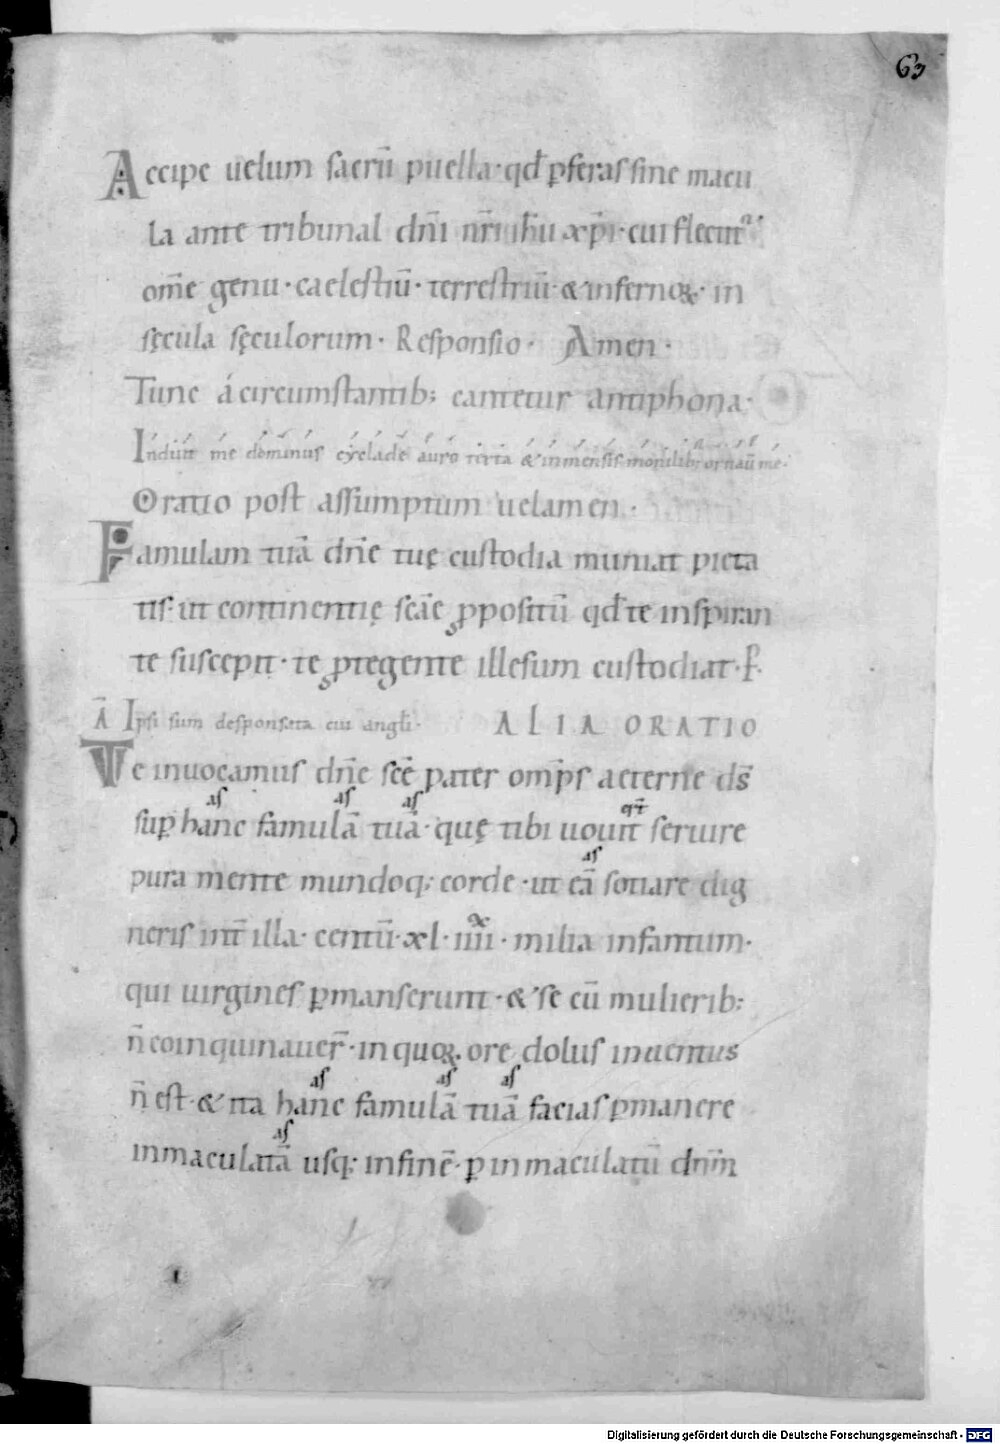 63
Accipe uelum sacrū puella · qđ ꝑferas sine macu
la ante tribunal dn̄i nr̄i ih̄u xp̄i · cui flectitᵘʳ
om̄e genu · caelestiū · terrestriū · & infernoꝝ · in
sęcula sęculorum · Responsio · Amen ·
Tunc á circumstantib; cantetur antiphona ·
Induit me dominus cyclade auro texta & inmensis monilib; ornauit me ·
Oratio post assumptum uelamen ·
Famulam tuā dn̄e tuę custodia muniat pieta
tis · ut continentię scāe ꝓpositū qđ te inspiran
te suscepit · te ꝓtegente illesum custodiat · P̄.
Ā Ipsi sum desponsata cui angl̄i · ALIA ORATIO
Te inuocamus dn̄e scē pater om̄ps aeterne ds̄
as as as er̄t
suꝑ hanc famulā tuā · quę tibi uouit seruire
as
pura mente mundoq; corde · ut eā sotiare dig
neris int̄ illa · centū · xl · iiii · milia infantum ·
qui uirgines ꝑmanserunt · & se cū mulierib;
n̄ coinquinauer̄ · in quoꝝ ore dolus inuentus
as as as
n̄ est · & ita hanc famulā tuā facias ꝑmanere
as
inmaculatā usq; in finē · ꝑ inmaculatū dn̄m
Digitalisierung gefördert durch die Deutsche Forschungsgemeinschaft - DFG